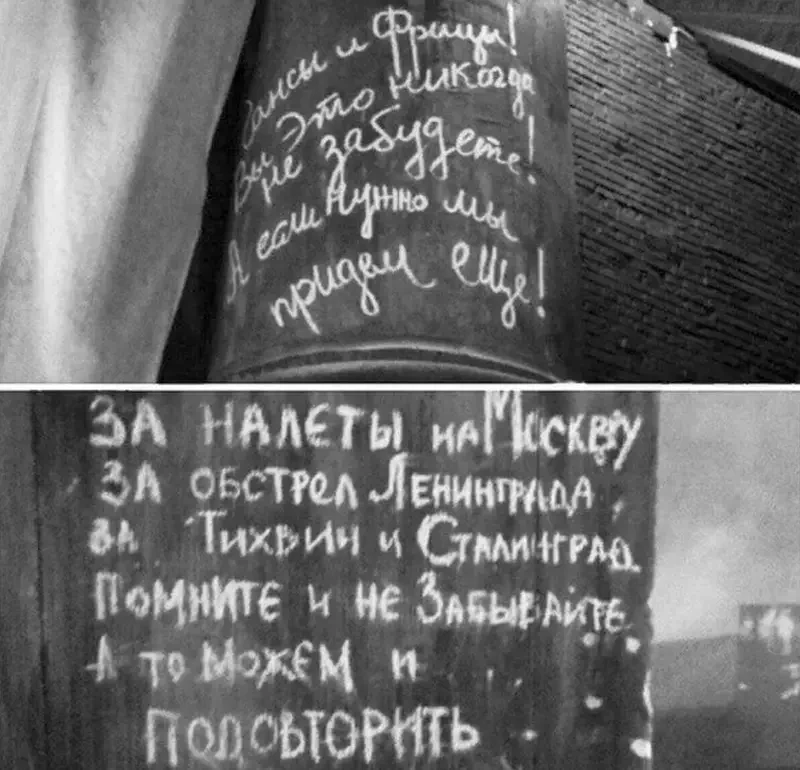 Гансы и Фрицы!
Вы это никогда
не забудете!
А если нужно мы
придем еще!
ЗА НАЛЕТЫ НА МОСКВУ
ЗА ОБСТРЕЛ ЛЕНИНГРАДА,
ЗА ТИХВИН И СТАЛИНГРАД
ПОМНИТЕ И НЕ ЗАБЫВАЙТЕ
А ТО МОЖЕМ И
ПОДОВТОРИТЬ